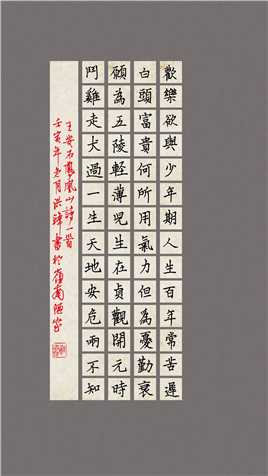 歡樂欲與少年期人生百年常苦遲
白頭富貴何所用氣力但為憂勤衰
願為五陵輕薄兒生在貞觀開元時
鬥雞走犬過一生天地安危兩不知
王安石鳳凰山詩一首
壬寅年月洪璋書於嶺南